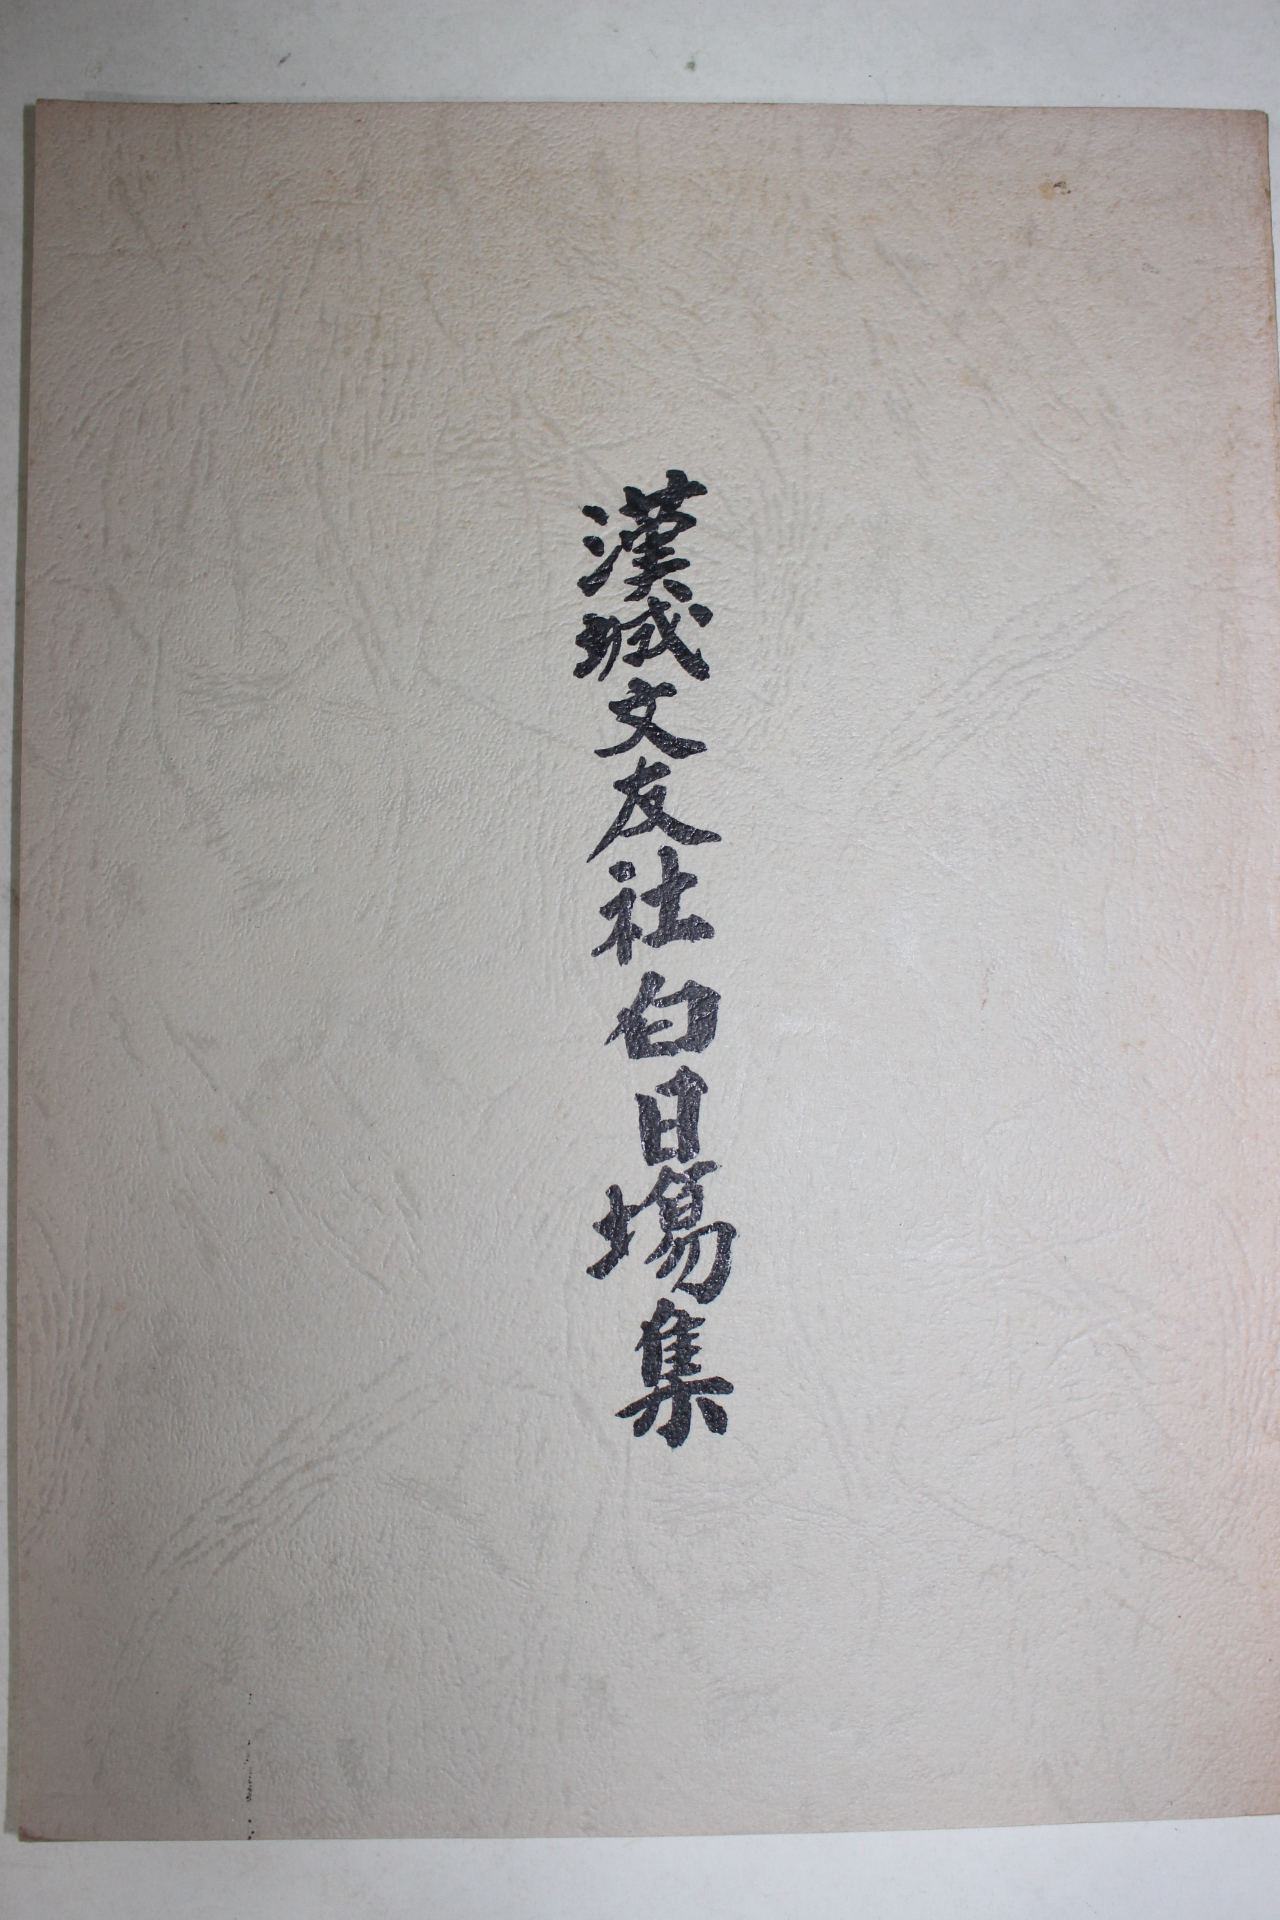 漢城文友社白日場集